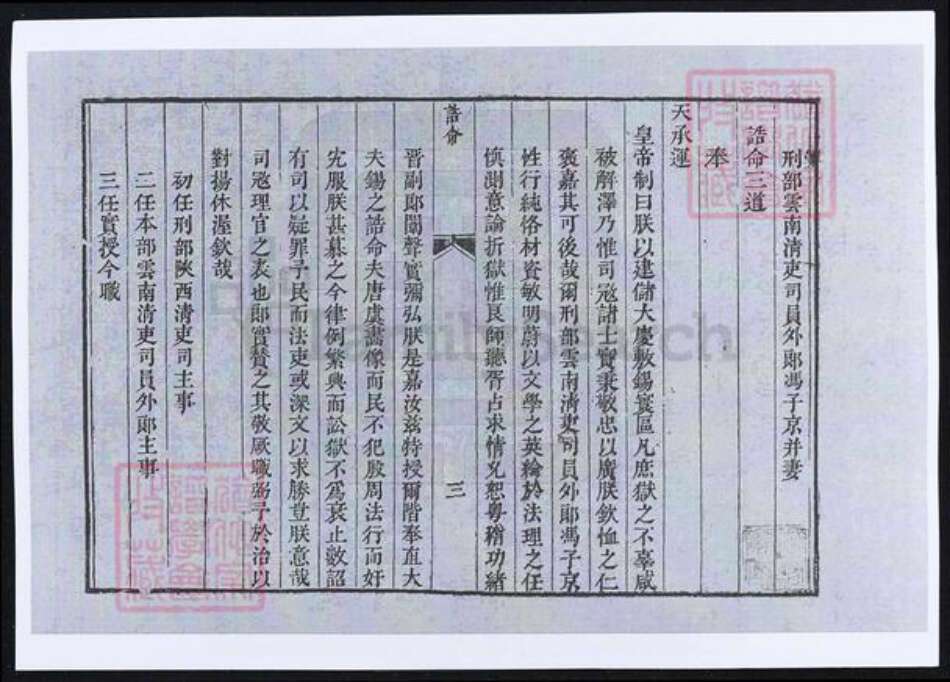 刑部雲南清吏司員外郎馮子京并妻
誥命三道
奉
天承運
皇帝制曰朕以建儲大慶敷錫寰區凡庶獄之不辜咸
被解澤乃惟司寇諸士寔秉敬忠以廣朕欽恤之仁
褒嘉其可後哉爾刑部雲南清吏司員外郎馮子京
性行純恪材資敏明蔚以文學之英綸於法理之任
慎測意論折獄惟良師聽胥占求情允恕粵稽功緒
誥命
三
晉副郎闈聲實彌弘朕是嘉汝茲特授爾階奉直大
夫錫之誥命夫唐虞畫像而民不犯殷周法行而奸
宄服朕甚慕之今律例繁興而訟獄不爲衰止數詔
有司以疑罪予民而法吏或深文以求勝豈朕意哉
司寇理官之表也郎實贊之其敬厥職弼予於治以
對揚休渥欽哉
初任刑部陝西清吏司主事
二任本部雲南清吏司員外郎主事
三任實授今職
FamilySearch